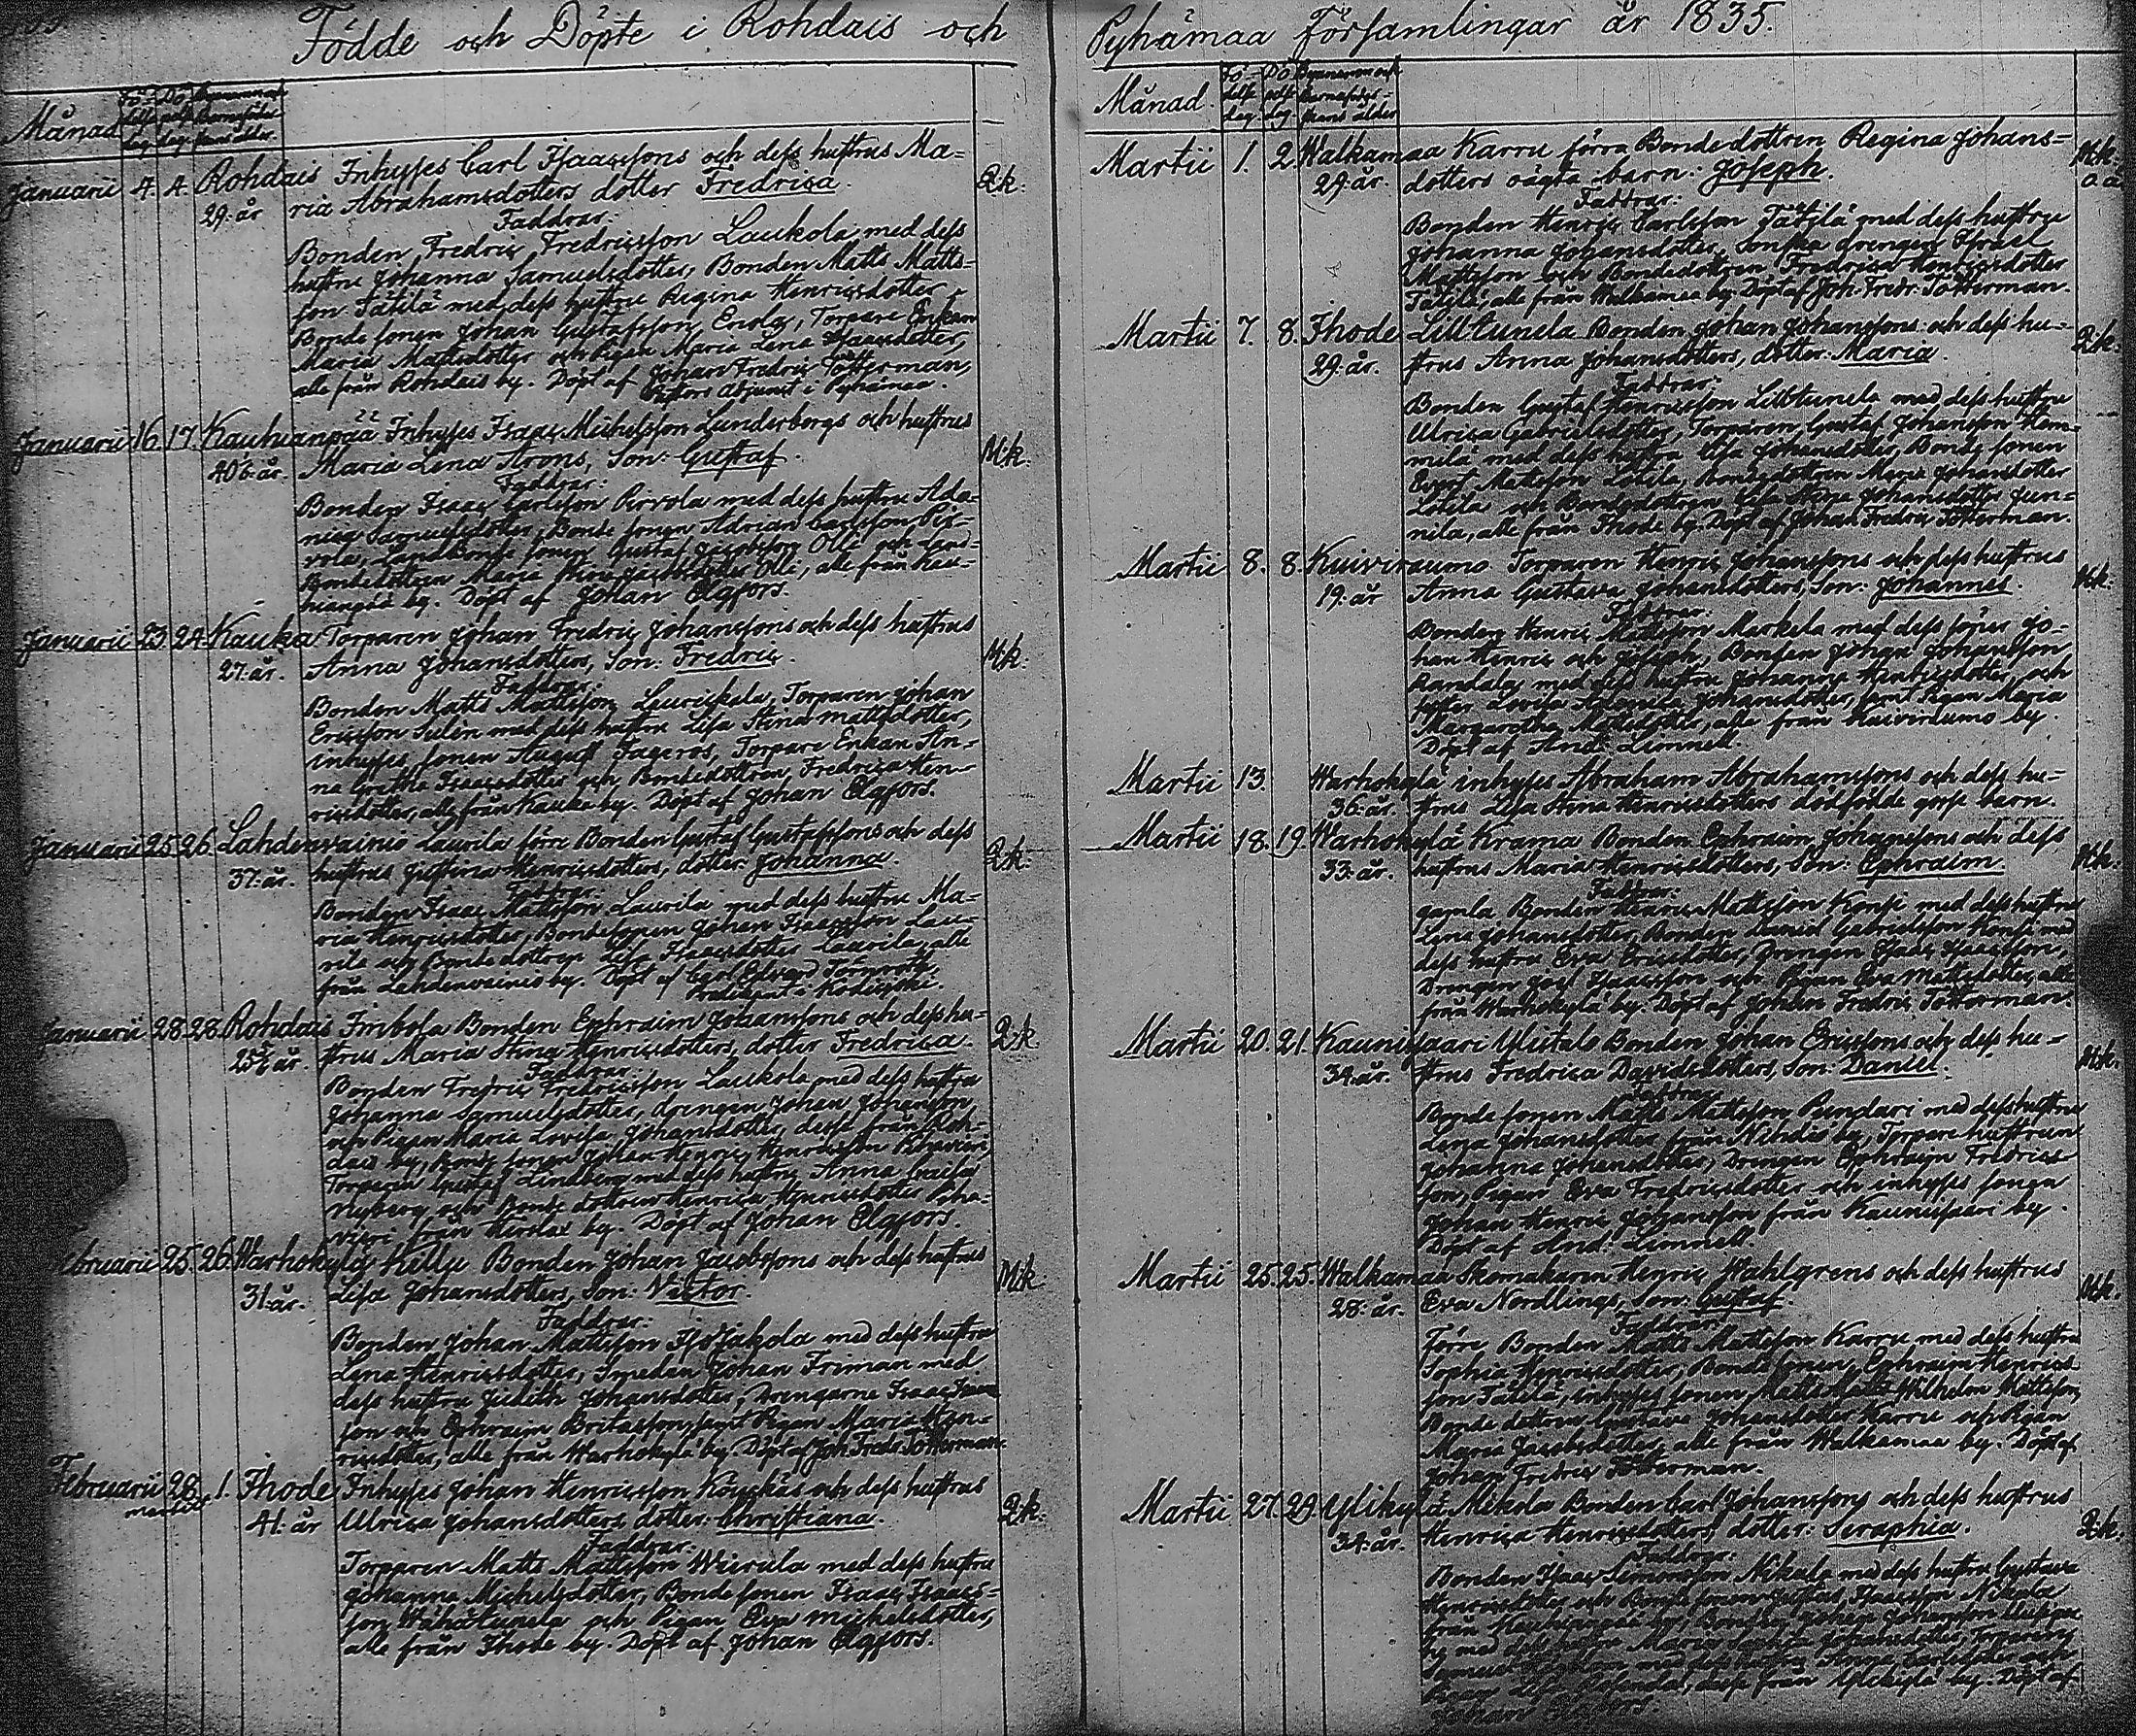 Födde och Döpte i Rohdais och
Månad
Januarii 4. 4. Rohdais Inhyses Carl Isaacssons och dess hustrus Ma=
29: år ria Abrahamsdotters dotter Fredrica. Q:k:
Faddrar:
Bonden Fredric Fredricsson Laukola med dess
hustru Johanna Samuelsdotter, Bonden Matts Matts=
son Tätilä med dess hustru Regina Henricsdotter
Bonde sonen Johan Gustafsson Enola, Torpare Enkan
Maria Mattsdotter och Pigan Maria Lena Isaacsdotter,
alle från Rohdais by. Döpt af Johan Fredric Tötterman,
Pastors Adjunct i Pyhämaa.
Januarii 16. 17. Kauhianpää Inhyses Isaac Michelsson Lunderbergs och hustrus
år. Maria Lena Arons, Son: Gustaf. M:k:
Faddrar:
Bonden Isaac Carlsson Pirvola med dess hustru
Samuelsdotter, Bonde sonen Adrian Carlsson Pir=
vola, sonen Gustaf Jacobsson Olli och
Bondedottren Maria Stina Jacobsdotter Olli, alle från Kau=
hianpää by. Döpt af Johan Elgfors.
Januarii 23. 24. Kauka Torparen Johan Fredric Johanssons och dess hustrus
27: år. Anna Johansdotters, Son: Fredric. M:k:
Faddrar:
Bonden Matts Mattsson Laurickala, Torparen Johan
Ericsson Sulin med dess hustru Lisa Stina Mattsdotter,
inhyses sonen August Fageros, Torpare Enkan An=
na Gretha Isaacsdotter och Bondedottren Fredrica Hen=
ricsdotter, alle från Kauka by. Döpt af Johan Elgfors.
Januarii 25. 26. Lahdenvainio Laurila förra Bonden Gustaf Gustafssons och dess
37: år. hustrus Justina Henricsdotters, dotter Johanna. Q:k:
Faddrar:
Bonden Isaac Mattsson Laurila med dess hustru Ma=
ria Henricsdotter, Bondesonen Johan Isaacsson Lau=
rila och Bonde dottren Lisa Isaacsdotter Laurila, alle
från Lahdenvainio by. Döpt af Carl Edvard Törnroth,
Predikant i Kodisjoki.
Januarii 28. 28. Rohdais Imbola Bonden Ephraim Johanssons och dess hu=
år. strus Maria Stina Henricsdotters, dotter Fredrica. Q:k
Faddrar:
Bonden Fredric Fredricsson Laukola med dess hustru
Johanna Samuelsdotter, drengen Johan Johansson
och Pigan Maria Lovisa Johansdotter, desse från Roh=
dais by, Bonde sonen Johan Henric Henricsson
Torparen Gustaf Lindberg med dess hustru Anna
Nyberg och Bonde dottren Henrica Henricsdotter
från by. Döpt af Johan Elgfors.
Februarii 25. 26. Warhokylä Kellu Bonden Johan Jacobssons och dess hustrus
31: år. Lisa Johansdotters, Son: Victor. M:k
Faddrar:
Bonden Johan Mattsson Isojakola med dess hustru
Lena Henricsdotter, Smeden Johan Friman med
dess hustru Judith Johansdotter, Drengarne Isaac
son och Ephraim Britasson, samt Pigan Maria Hen=
ricsdotter, alle från Warhokylä by. Döpt af Joh. Fredr. Tötterman.
Februarii 28. 1. Ihode Inhyses Johan Henricsson Köyckäs och dess hustrus
41: år Ulrica Johansdotters dotter: Christiana. Q:k:
Faddrar:
Torparen Matts Mattsson Wierula med dess hustru
Johanna Michelsdotter, Bonde sonen Isaac Isaacs=
son Wähätunela och Pigan Eva Michelsdotter,
alle från Ihode by. Döpt af Johan Elgfors.
Pyhämaa Församlingar år 1835.
Månad.
Martii 1. 2. Walkamaa Karru förra Bondedottren Regina Johans=
29: år. dotters oägta barn: Joseph. M:k:
Faddrar:
Bonden Henric Carlsson Tätilä med dess hustru
Johanna Johansdotter, drengen Israel
Mattsson och Bondedottren Fredrica Henricsdotter
Tätilä, alle från Walkamaa by. Döpt af Joh. Fredr. Tötterman.
Martii 7. 8. Ihode Lilltunela Bonden Johan Johanssons och dess hu=
29: år. strus Anna Johansdotters, dotter: Maria. Q:k:
Faddrar:
Bonden Gustaf Henricsson Lilltunela med dess hustru
Ulrica Gabrielsdotter, Torparen Gustaf Johansson Hem=
milä med dess hustru Lisa Johansdotter, Bonde sonen
Evert Mattsson Lötilä, Bondedottren Maria Johansdotter
Lötilä och Bondedottren Lisa Stina Johansdotter Jun=
nila, alle från Ihode by. Döpt af Johan Fredric Tötterman.
Martii 8. 8. Kuiviraumo Torparen Henric Johanssons och dess hustrus
19: år Anna Gustava Johansdotters, Son: Johannes. M:k:
Faddrar:
Bonden Henric Mattsson Markela med dess söner Jo=
han Henric och Joseph, Bonden Johan Johansson
Randala med dess hustru Johanna Henricsdotter, och
syster Lovisa Johansdotter, samt Pigan Maria
Margaretha Mattsdotter, alle från Kuiviraumo by.
Döpt af And: Limnell.
Martii 13. Warhokylä inhyses Abraham Abrahamssons och dess hu=
36: år. strus Lisa Stina Henricsdotters dödfödde gosse barn.
Martii 18. 19. Warhokylä Krama Bonden Ephraim Johanssons och dess
33: år. hustrus Maria Henricsdotters, Son: Ephraim. M:k:
Faddrar:
gamla Bonden Henric Mattsson Konsi med dess hustru
Lena Johansdotter, Bonden Daniel Gabrielsson Konsi med
dess hustru Eva Ericsdotter, Drengen Isaac Isaacsson,
Drengen Joel Isaacsson och Pigan Eva Mattsdotter, alle
från Warhokylä by. Döpt af Johan Fredric Tötterman.
Martii 20. 21. Kaunisaari Ylistalo Bonden Johan Ericssons och dess hu=
34: år. strus Fredrica Davidsdotters, Son: Daniel. M:k:
Faddrar:
Bonde sonen Matts Mattsson Pundari med dess hustru
Lena Johansdotter från Nihdis by, Torpare hustrun
Johanna Johansdotter, Drengen Ephraim Fredrics=
son, Pigan Eva Fredricsdotter och inhyses sonen
Johan Henric Johansson från Kaunisaari by.
Döpt af And: Limnell
Martii 25. 25. Walkamaa Skomakaren Henric Wahlgrens och dess hustrus
28: år. Eva Nordlings, Son: Gustaf. M:k.
Faddrar:
Förre Bonden Matts Mattsson Karru med dess hustru
Sophia Henricsdotter, Bonde sonen Ephraim Henrics=
son Tätilä, inhyses sonen Wilhelm Mattsson,
Bonde dottren Gustava Johansdotter Karru och Pigan
Maria Jacobsdotter, alle från Walkamaa by. Döpt af
Johan Fredric Tötterman.
Martii 27. 29. Ylikylä Mikola Bonden Carl Johanssons och dess hustrus
34: år. Henrica Henricsdotters, dotter: Seraphia. Q:k:
Faddrar:
Bonden Isaac Simonsson Nikula med dess hustru Gustava
Henricsdotter och Bonde sonen Isaacsson Nikula
från by, Bonden Johan Johansson
by med dess hustru Maria Sophia Johansdotter, Torparen
Samuel med dess hustru Anna Carlsdotter och
Pigan Lisa från Ylikylä by. Döpt af
Johan Elgfors.